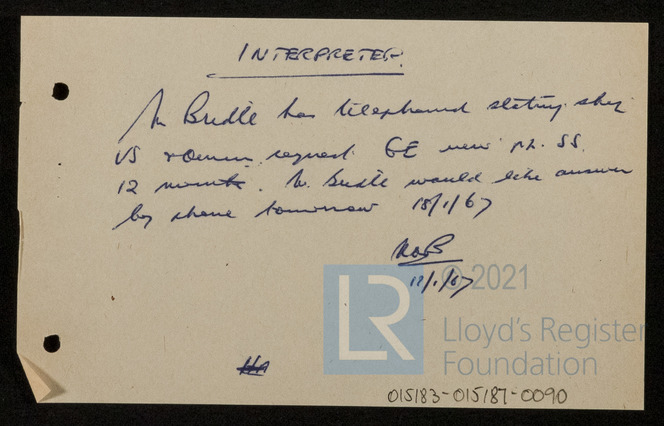 INTERPRETER.
Mr Bridle has telephoned stating ship
US Owners request GE
12 months. Mr Bridle would like answer
by phone tomorrow 18/1/67
17/1/67
© 2021
LR
Lloyd's Register
Foundation
015183-015187-0090